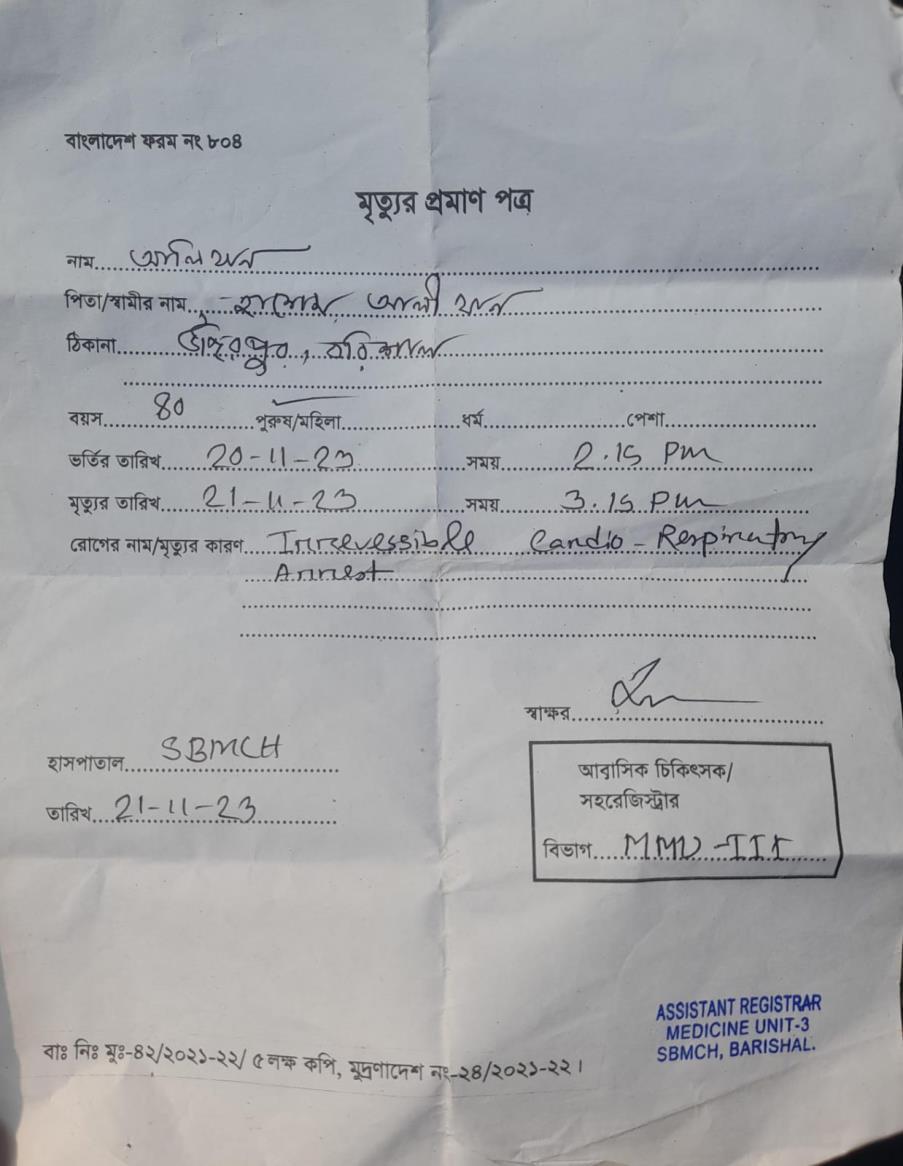 বাংলাদেশ ফরম নং ৮০৪
মৃত্যুর প্রমাণ পত্র
নাম..... আলি খান
পিতা/স্বামীর নাম..... আলী খান
ঠিকানা..... উজিরপুর, বরিশাল
বয়স..... 80 পুরুষ/মহিলা..... ধর্ম..... পেশা.....
ভর্তির তারিখ..... 20-11-23 সময়..... 2.15 PM
মৃত্যুর তারিখ..... 21-11-23 সময়..... 3.15 PM
রোগের নাম/মৃত্যুর কারণ..... Irrevessible Cardio-Respiratory
Arrest
স্বাক্ষর.....
হাসপাতাল..... SBMCH
তারিখ..... 21-11-23
আবাসিক চিকিৎসক/
সহরেজিস্ট্রার
বিভাগ..... MMU-III
ASSISTANT REGISTRAR
MEDICINE UNIT-3
SBMCH, BARISHAL.
বাঃ নিঃ মুঃ-৪২/২০২১-২২/ ৫ লক্ষ কপি, মুদ্রণাদেশ নং-২৪/২০২১-২২।